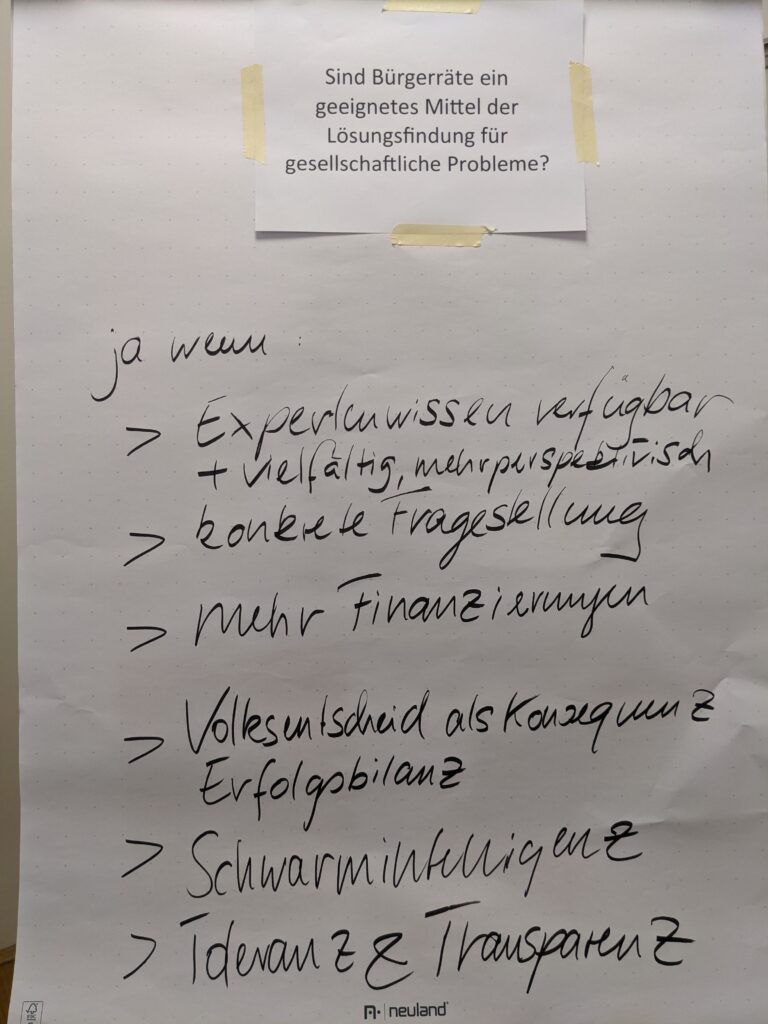 Sind Bürgerräte ein
geeignetes Mittel der
Lösungsfindung für
gesellschaftliche Probleme?
ja wenn :
> Expertenwissen verfügbar
+ vielfältig, mehrperspektivisch
> konkrete Fragestellung
> mehr Finanzierungen
> Volksentscheid als Konsequenz
Erfolgsbilanz
> Schwarmintelligenz
> Toleranz & Transparenz
neuland